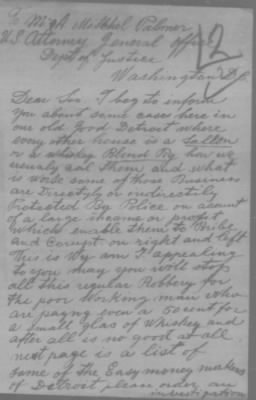 To Mr A. Mitchel Palmer
U.S. Attorney General office
Dept of Justice
Washington D.C.
12
Dear Sir. I beg to inform
you about some cases here in
our old Good Detroit where
every other house is a Saloon
or a whiskey Blind Pig how we
usualy call them and what
is worse some of those Business
are Directly or indirectily
Protected By Police on account
of a large income or profit
which enable them to Bribe
and Corrupt on right and left
This is Wy am I appealing
to you may you will stop
all this regular Robbery for
the poor working man who
are payng even a 50 cent for
a small glas of Whiskey and
after all is no good at all.
next page is a list of
some of the Easy money makers
of Detroit please order an
investigation